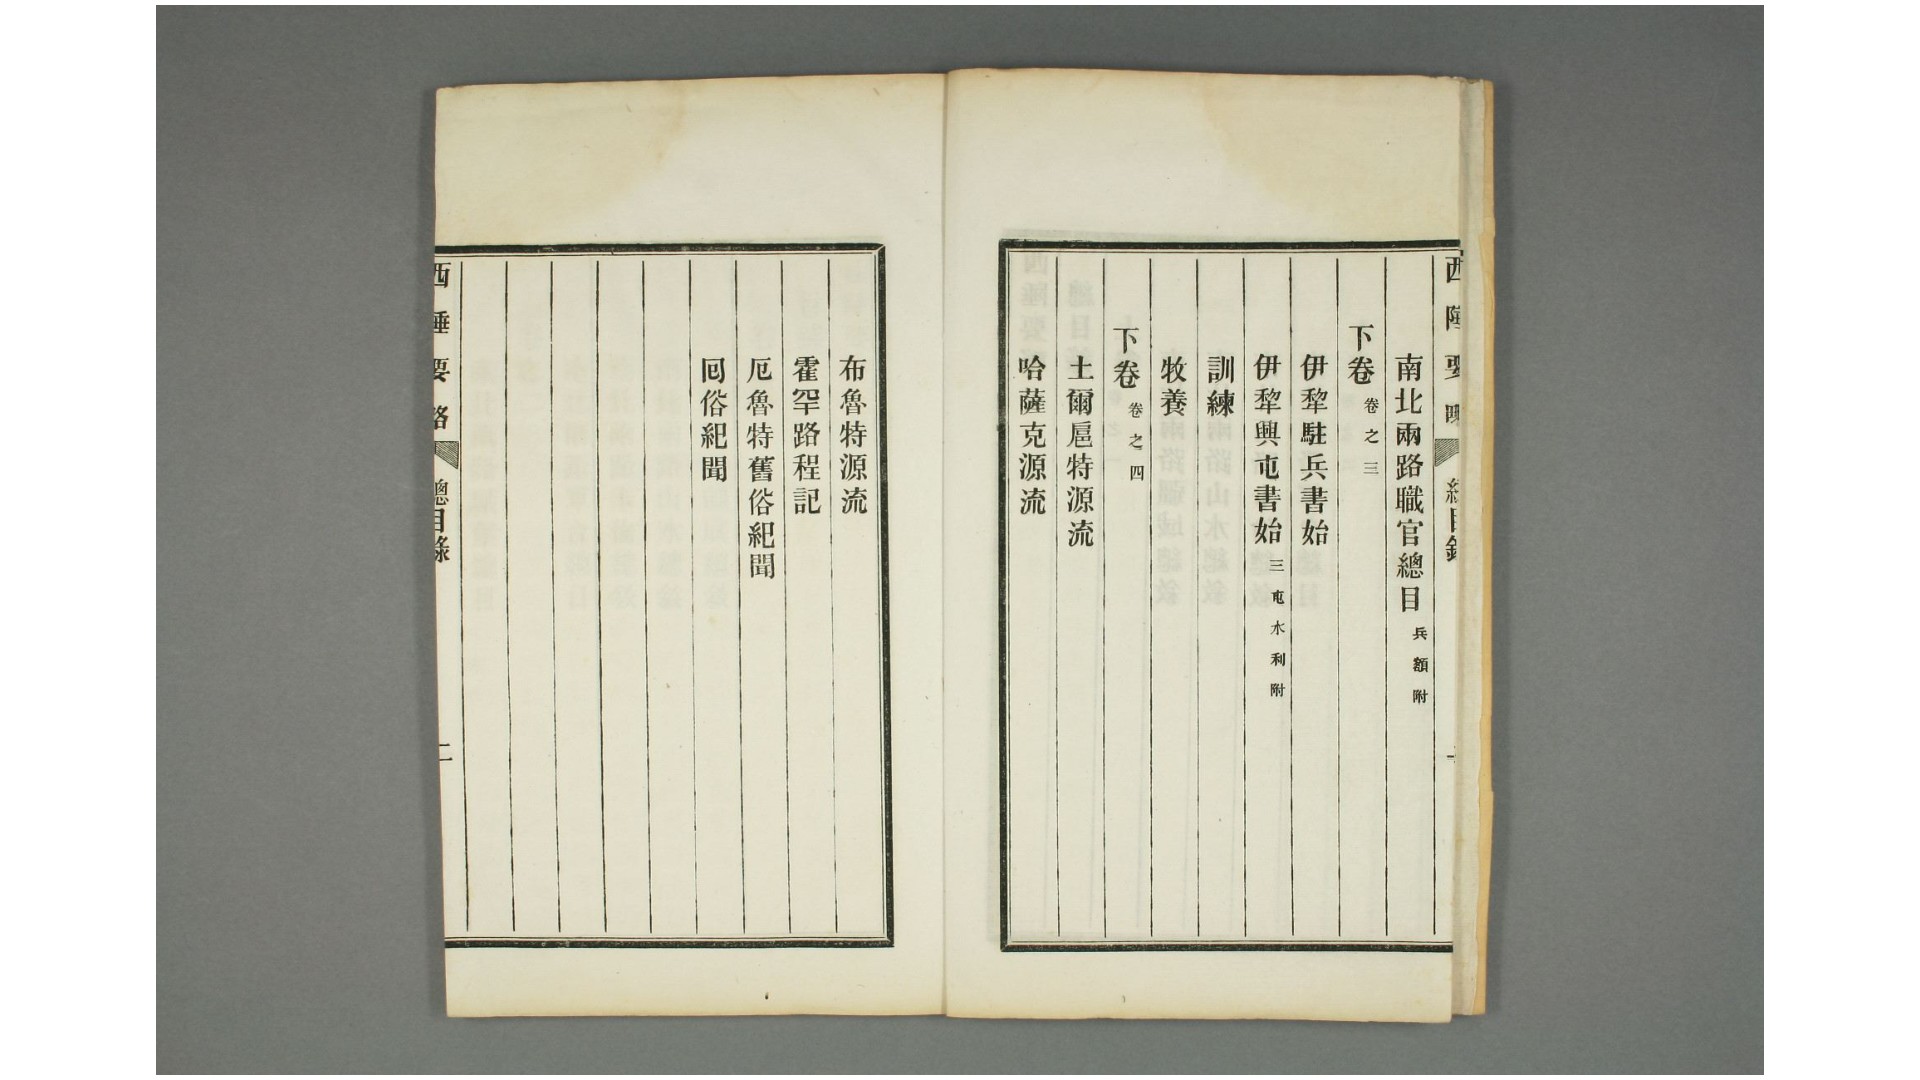 西陲要略
總目錄
南北兩路職官總目 兵額附
下卷 卷之三
伊犂駐兵書始
伊犂興屯書始 三屯水利附
訓練
牧養
下卷 卷之四
土爾扈特源流
哈薩克源流
布魯特源流
霍罕路程記
厄魯特舊俗紀聞
囘俗紀聞
西陲要略
總目錄
二